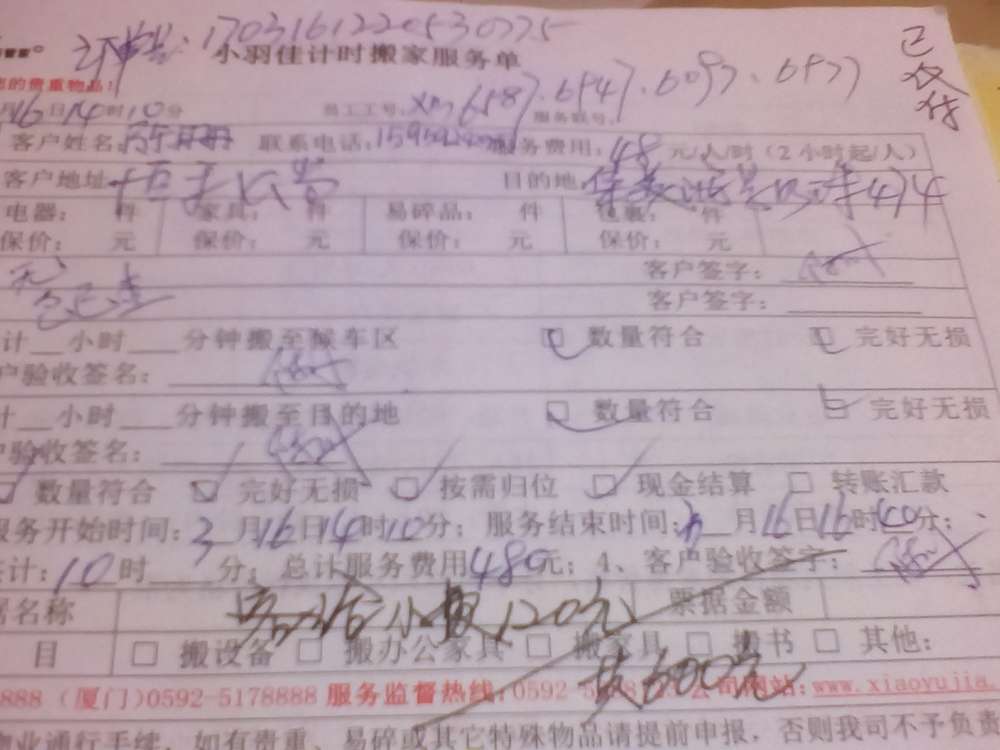 17031612205530775
小羽佳计时搬家服务单
已收
的贵重物品：
月16日14时10分 员工工号：xm6587、6547、6097、6577 服务联号：
客户姓名： 联系电话： 服务费用：48元/人/时（2小时起/人）
客户地址： 目的地：
电器： 件 家具： 件 易碎品： 件 包裹： 件
保价： 元 保价： 元 保价： 元 保价： 元
客户签字：
客户签字：
计__小时___分钟搬至候车区 数量符合 完好无损
户验收签名：
计__小时___分钟搬至目的地 数量符合 完好无损
户验收签名：
数量符合 完好无损 按需归位 现金结算 转账汇款
服务开始时间：3月16日14时10分；服务结束时间：3月16日16时40分；
共计：10时___分；总计服务费用480元；4、客户验收签字：
据名称 小费120元 票据金额
目 搬设备 搬办公家具 搬家具 搬书 其他：
共600元
8888（厦门）0592-5178888 服务监督热线：0592-5 公司网站：www.xiaoyujia.
物业通行手续，如有贵重、易碎或其它特殊物品请提前申报，否则我司不予负责